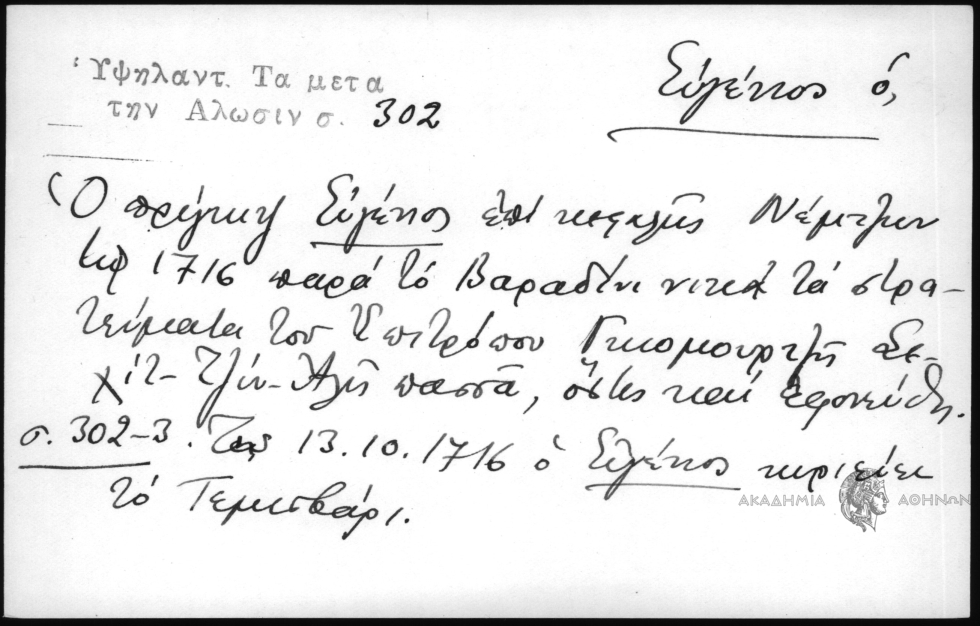 Ὑψηλαντ. Τα μετα
την Αλωσιν σ. 302
Εὐγένιος ὁ,
Ὁ πρίγκιψ Εὐγένιος ἐπί κεφαλῆς Νέμτζων
τῷ 1716 παρά τό Βαραδίνι νικᾷ τά στρα-
τεύματα τοῦ Ἐπιτρόπου Γκιομουρτζῆ Σε-
χίτ-Τζίν-Ἀλῆ πασσᾶ, ὅστις καί ἐφονεύθη.
σ. 302-3. Τῇ 13.10.1716 ὁ Εὐγένιος κυριεύει
τό Τεμισβάρι.
ΑΚΑΔΗΜΙΑ ΑΘΗΝΩΝ